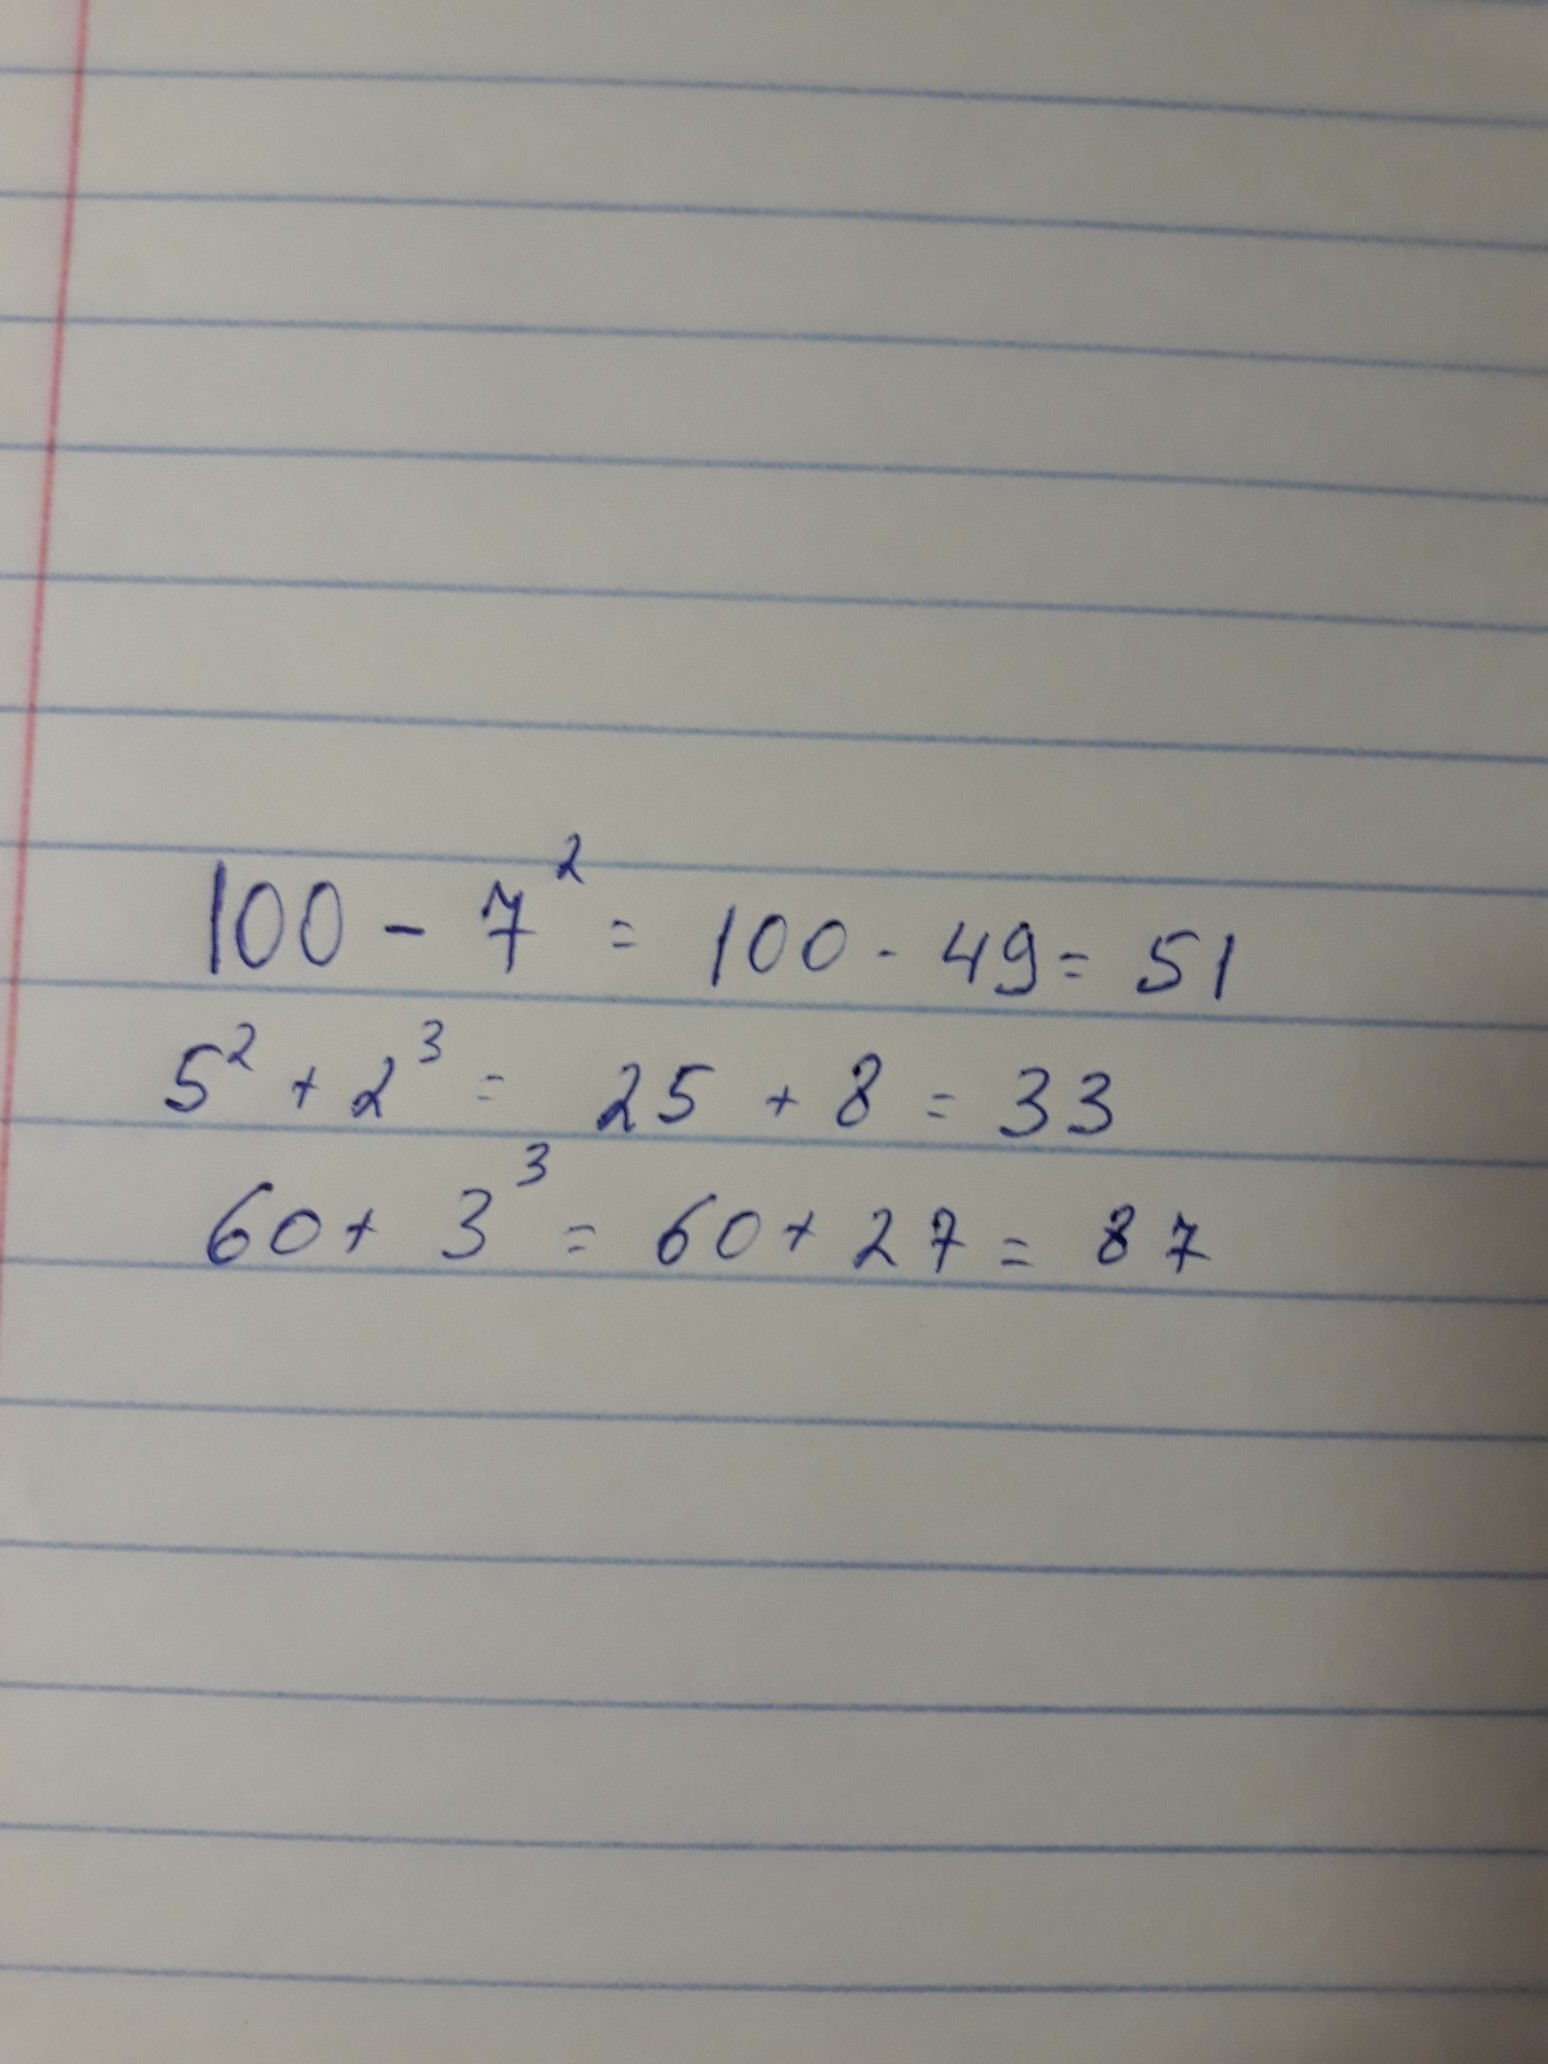 100 - 7² = 100 - 49 = 51
5² + 2³ = 25 + 8 = 33
60 + 3³ = 60 + 27 = 87